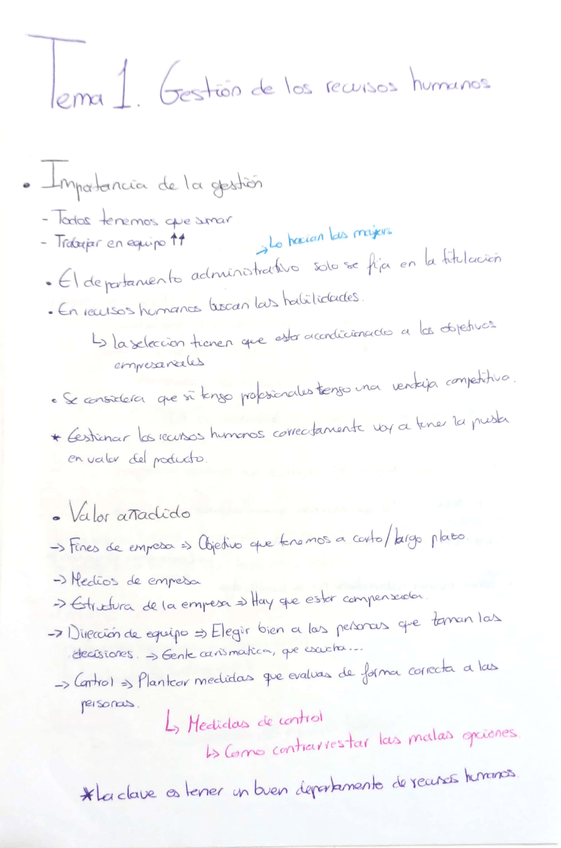 Tema 1. Gestión de los recursos humanos
• Importancia de la gestión
- Todos tenemos que sumar
- Trabajar en equipo ↑↑
→ Lo hacían las mujers
• El departamento administrativo solo se fija en la titulación
• En recursos humanos buscan las habilidades.
↳ la selección tienen que estar acondicionado a los objetivos
empresariales
• Se considera que si tengo profesionales tengo una ventaja competitiva.
* Gestionar los recursos humanos correctamente voy a tener la puesta
en valor del producto.
• Valor añadido
→ Fines de empresa ⇒ Objetivo que tenemos a corto/largo plazo.
→ Medios de empresa
→ Estructura de la empresa ⇒ Hay que estar compensada.
→ Dirección de equipo ⇒ Elegir bien a las personas que toman las
decisiones. → Gente carismatica, que escucha...
→ Control ⇒ Plantear medidas que evaluas de forma correcta a las
personas.
↳ Medidas de control
↳ Como contrarrestar las malas opciones.
* La clave es tener un buen departamento de recursos humanos.